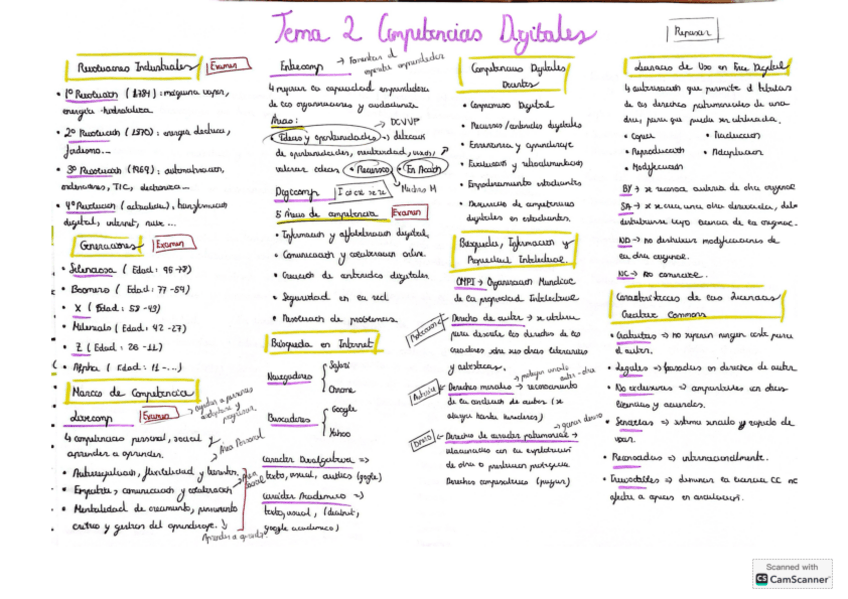 Tema 2 Competencias Digitales
Repasar
Revoluciones Industriales
Examen
• 1º Revolución (1784): máquina vapor,
energía hidráulica.
• 2º Revolución (1870): energía eléctrica,
fordismo...
• 3º Revolución (1969): automatización,
ordenadores, TIC, electrónica...
• 4º Revolución (actualidad), transformación
digital, internet, nube...
Generaciones
Examen
• Silenciosa (Edad: 96-78)
• Boomers (Edad: 77-59)
• X (Edad: 58-43)
• Milenials (Edad: 42-27)
• Z (Edad: 26-11)
• Alpha (Edad: 11-...)
Marcos de Competencia
Lifecomp
Examen
ayudar a personas
4 competencias personal, social y
aprender a aprender.
Area Personal
• Autorregulación, flexibilidad y bienestar.
• Empatía, comunicación y colaboración
Area Social
• Mentalidad de crecimiento, pensamiento
crítico y gestión del aprendizaje.
Aprender a aprender
Entrecomp
→ Fomentar el
espíritu emprendedor
4 mejorar la capacidad emprendedora
de las organizaciones y ciudadanía
Áreas:
• Ideas y oportunidades
→ detección
de oportunidades, creatividad, visión,
valorar ideas
• Recursos
• En Acción
Digicomp
5 Áreas de competencia
Examen
• Información y alfabetización digital.
• Comunicación y colaboración online.
• Creación de contenidos digitales.
• Seguridad en la red
• Resolución de problemas.
Búsqueda en Internet
Navegadores
Safari
Chrome
Buscadores
Google
Yahoo
Carácter Divulgativa =>
texto, visual, auditiva (google)
Carácter Académico =>
texto, visual, (dialnet,
google académico)
Competencias Digitales
Docentes
• Compromiso Digital
• Recursos/contenidos digitales
• Enseñanza y aprendizaje
• Evaluación y retroalimentación
• Empoderamiento estudiantes
• Desarrollo de competencias
digitales en estudiantes.
Búsqueda, Información y
Propiedad Intelectual.
OMPI → Organización Mundial
de la propiedad Intelectual
Derecho de autor → se utiliza
para describir los derechos de los
creadores sobre sus obras literarias
y artísticas.
Autoría
Derechos morales → reconocimiento
de la condición de autor (se
otorgan hasta herederos)
ganar dinero
Dinero
Derechos de carácter patrimonial →
relacionados con la explotación
de obra o prestación protegida
Derechos compensatorios (pagar)
Licencias de Uso en Era Digital
4 autorización que permite el titular
de los derechos patrimoniales de una
obra, para que pueda ser utilizada.
• Copia
• Traducción
• Reproducción
• Adaptación
• Modificación
BY → se reconoce autoría de obra original
SA → si se crea una obra derivada, debe
distribuirse bajo licencia de la original.
ND → no distribuir modificaciones de
la obra original.
NC → No comercial.
Características de las Licencias
Creative Commons
• Gratuitas => no suponen ningún coste para
el autor.
• Legales => basadas en derechos de autor.
• No exclusivas => compatibles con otras
licencias y acuerdos.
• Sencillas => sistema sencillo y rápido de
usar.
• Reconocidas => internacionalmente.
CC no
Scanned with
CS CamScanner